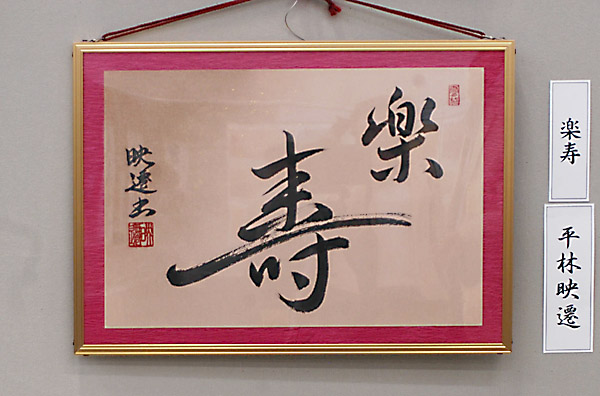 樂
壽
映遷书
楽寿
平林映遷